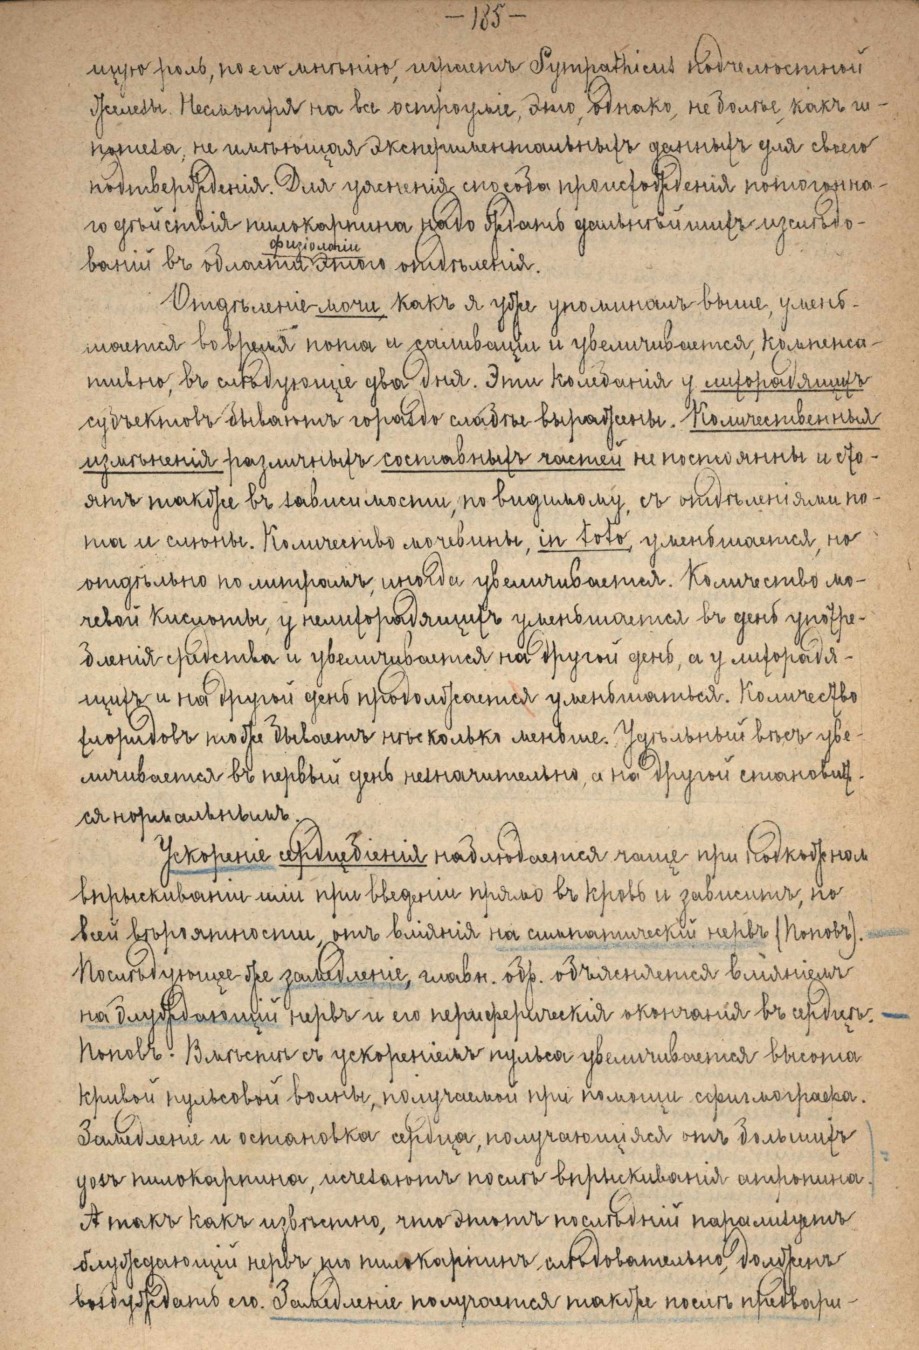 — 185 —
щую роль, по его мнѣнію, играетъ Sympathicus подчелюстной
железы. Несмотря на все остроуміе, это, однако, не болѣе, какъ ги-
потеза, не имѣющая экспериментальныхъ данныхъ для своего
подтвержденія. Для уясненія способа происхожденія потогонна-
го дѣйствія пилокарпина надо ждать дальнѣйшихъ изслѣдо-
физіологіи
ваній въ области этого отдѣленія.
Отдѣленіе мочи, какъ я уже упоминалъ выше, умень-
шается во время пота и саливаціи и увеличивается, компенса-
тивно, въ слѣдующіе два дня. Эти колебанія у лихорадящихъ
субъектовъ бываютъ гораздо слабѣе выражены. Количественныя
измѣненія различныхъ составныхъ частей не постоянны и сто-
ятъ также въ зависимости, по видимому, съ отдѣленіями по-
та и слюны. Количество мочевины, in toto, уменьшается, но
отдѣльно по литрамъ, иногда увеличивается. Количество мо-
чевой кислоты, у нелихорадящихъ уменьшается въ день употре-
бленія средства и увеличивается на другой день, а у лихорадя-
щихъ и на другой день продолжается уменьшаться. Количество
хлоридовъ тоже бываетъ нѣсколько меньше. Удѣльный вѣсъ уве-
личивается въ первый день незначительно, а на другой становит-
ся нормальнымъ.
Ускореніе сердцебіенія наблюдается чаще при подкожномъ
впрыскиваніи или при введеніи прямо въ кровь и зависитъ, по
всей вѣроятности, отъ вліянія на симпатическій нервъ (Поповъ).
Послѣдующее-же замедленіе, главн. обр. объясняется вліяніемъ
на блуждающій нервъ и его периферическія окончанія въ сердцѣ.
Поповъ. Вмѣстѣ съ ускореніемъ пульса увеличивается высота
кривой пульсовой волны, получаемой при помощи сфигмографа.
Замедленіе и остановка сердца, получающіяся отъ большихъ
дозъ пилокарпина, исчезаютъ послѣ впрыскиванія атропина.
А такъ какъ извѣстно, что этотъ послѣдній парализуетъ
блуждающій нервъ, то пилокарпинъ, слѣдовательно, долженъ
возбуждать его. Замедленіе получается также послѣ предвари-